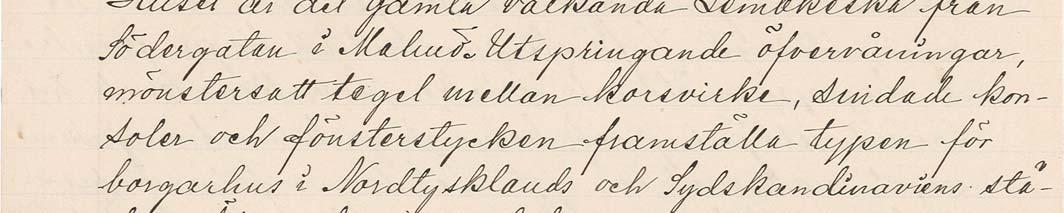 Huset är det gamla välkända Lembkeska från
Södergatan i Malmö. Utspringande öfvervåningar,
mönstersatt tegel mellan korsvirke, snidade kon-
soler och fönsterstycken framställa typen för
borgarhus i Nordtysklands och Sydskandinaviens stä-